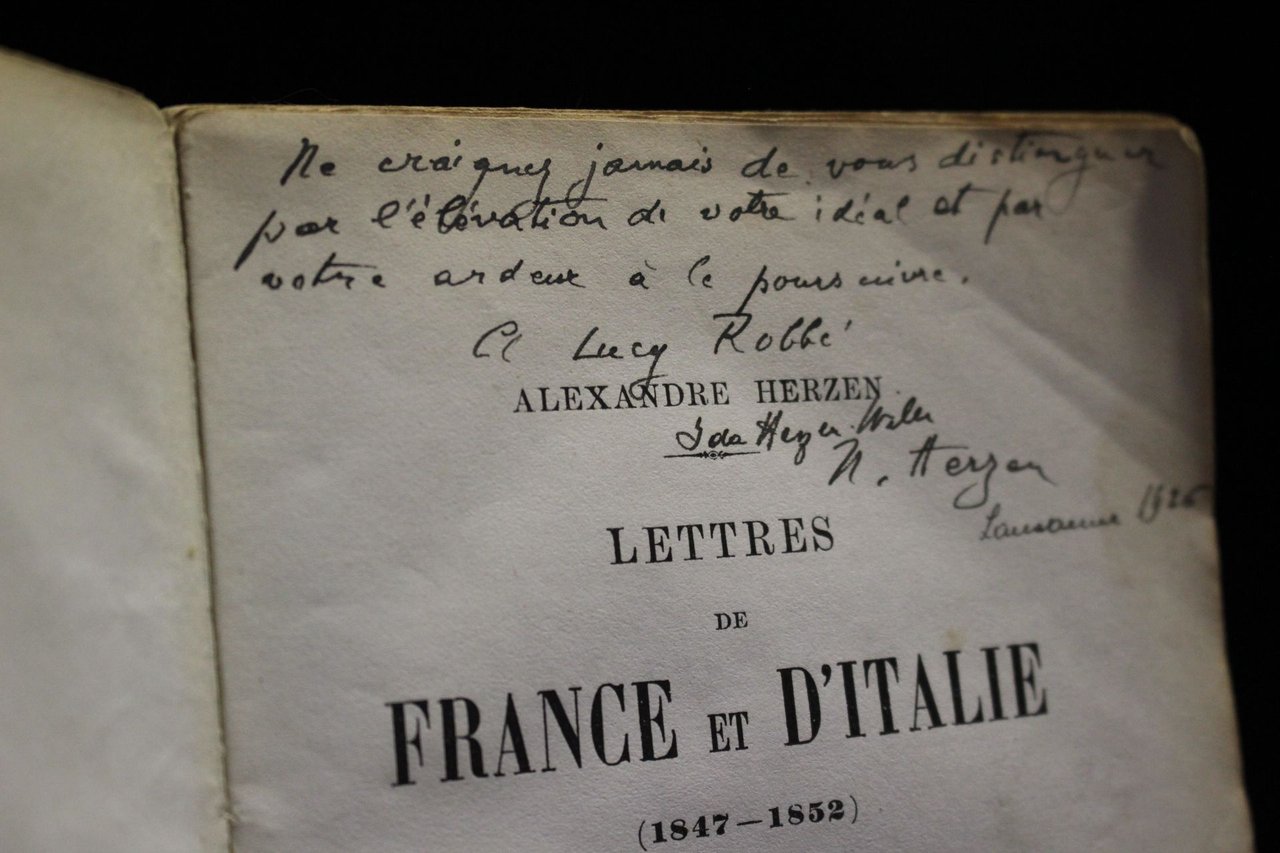 Ne craignez jamais de vous distinguer
par l'élévation de votre idéal et par
votre ardeur à le poursuivre.
A Lucy Robbé
ALEXANDRE HERZEN
Ida Herzen
N. Herzen
Lausanne
LETTRES
DE
FRANCE ET D'ITALIE
(1847—1852)